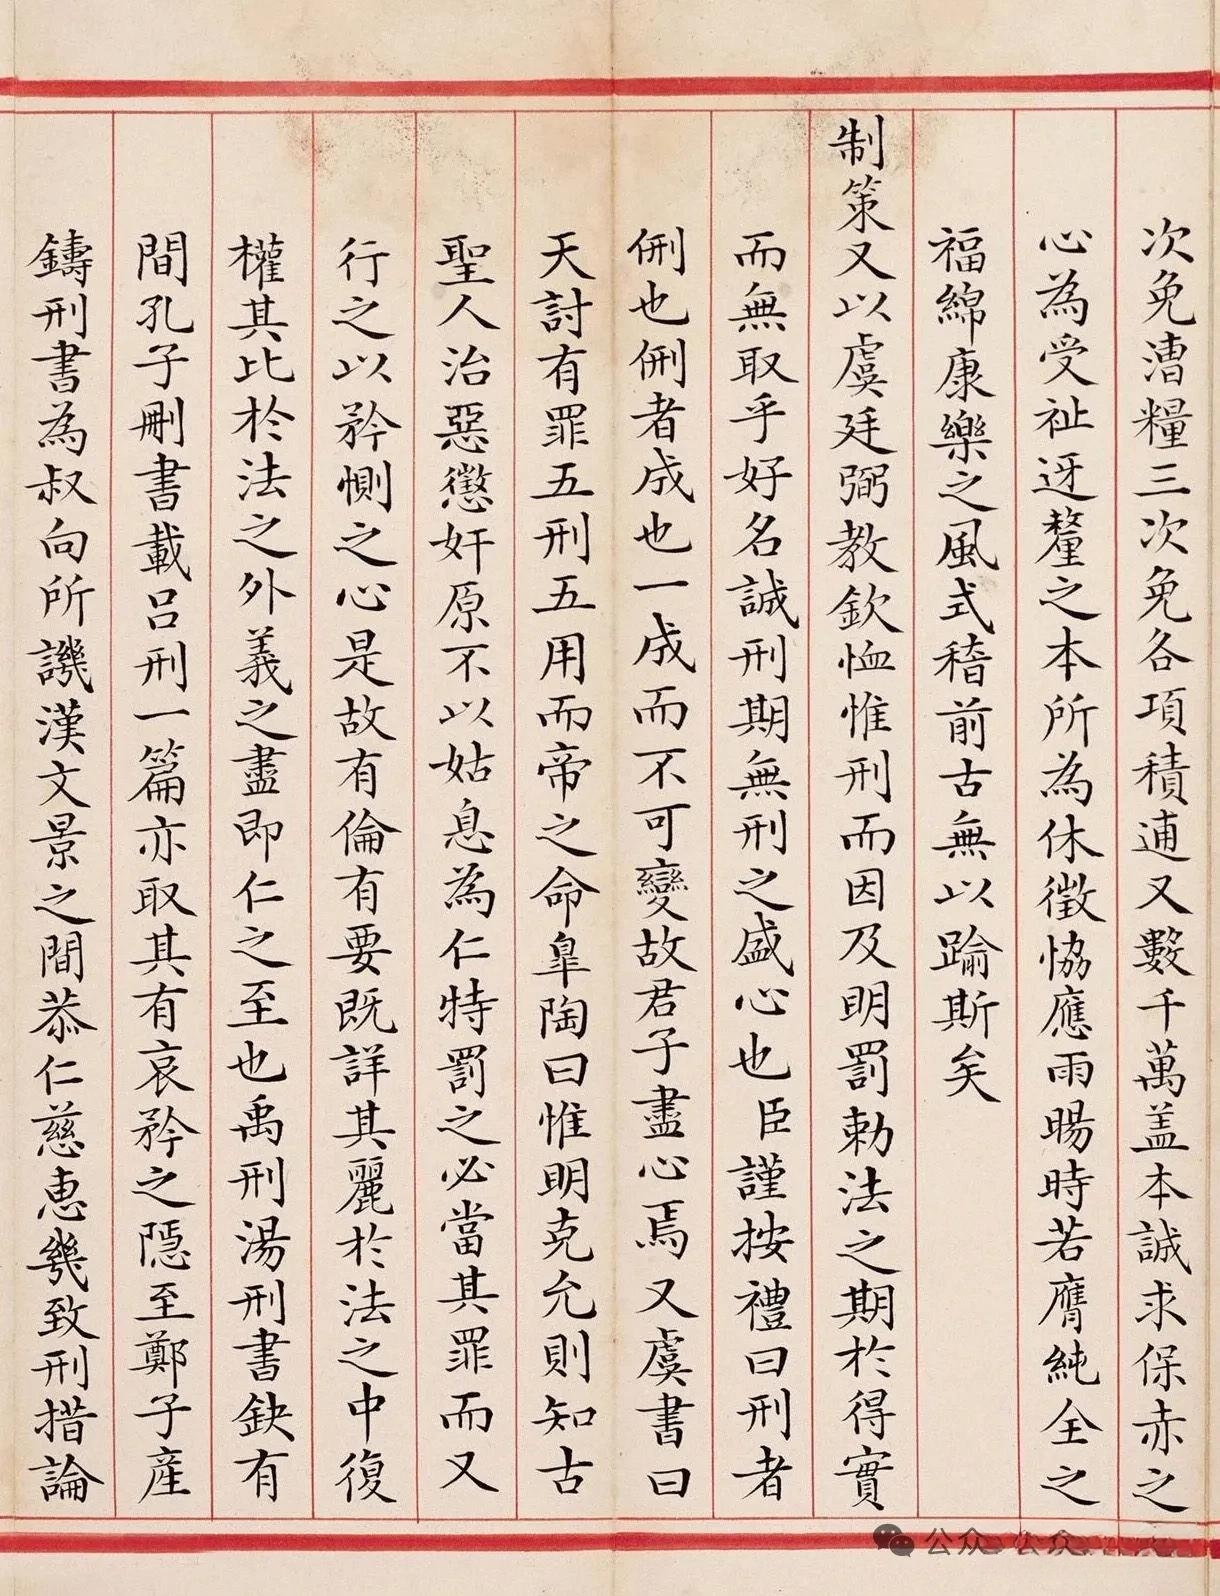 次免漕糧三次免各項積逋又數千萬盖本誠求保赤之
心為受祉迓釐之本所為休徵恊應雨暘時若膺純全之
福綿康樂之風式稽前古無以踰斯矣
制策又以虞廷弼教欽恤惟刑而因及明罰勅法之期於得實
而無取乎好名誠刑期無刑之盛心也臣謹按禮曰刑者
侀也侀者成也一成而不可變故君子盡心焉又虞書曰
天討有罪五刑五用而帝之命臯陶曰惟明克允則知古
聖人治惡懲奸原不以姑息為仁特罰之必當其罪而又
行之以矜惻之心是故有倫有要既詳其麗於法之中復
權其比於法之外義之盡即仁之至也禹刑湯刑書缺有
間孔子刪書載呂刑一篇亦取其有哀矜之隱至鄭子產
鑄刑書為叔向所譏漢文景之間恭仁慈惠幾致刑措論
公众 公众